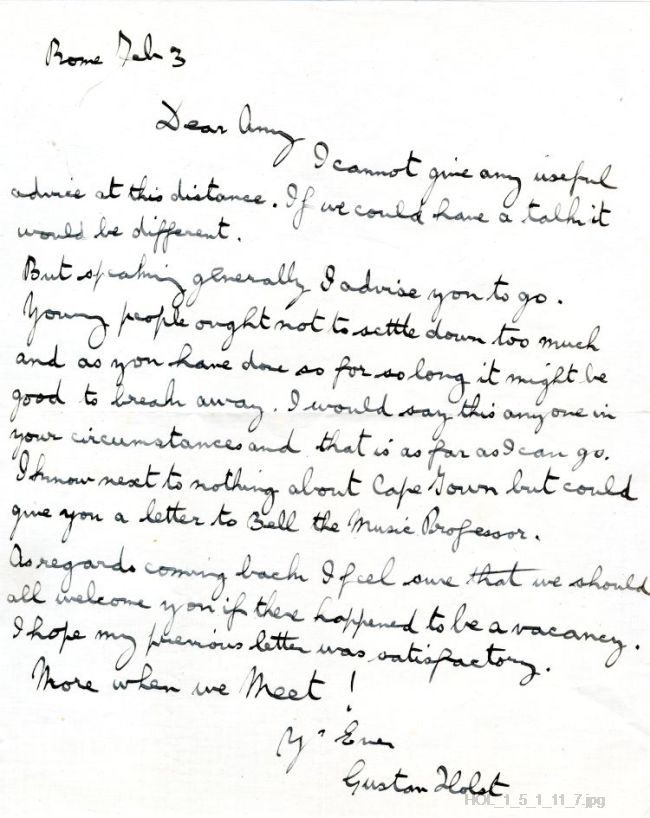 Rome Feb 3
Dear Amy
I cannot give any useful
advice at this distance. If we could have a talk it
would be different.
But speaking generally I advise you to go.
Young people ought not to settle down too much
and as you have done so for so long it might be
good to break away. I would say this anyone in
your circumstances and that is as far as I can go.
I know next to nothing about Cape Town but could
give you a letter to Bell the Music Professor.
As regards coming back I feel sure that we should
all welcome you if there happened to be a vacancy.
I hope my previous letter was satisfactory.
More when we Meet !
Yr Ever
Gustav Holst
HOL_1_5_1_11_7.jpg